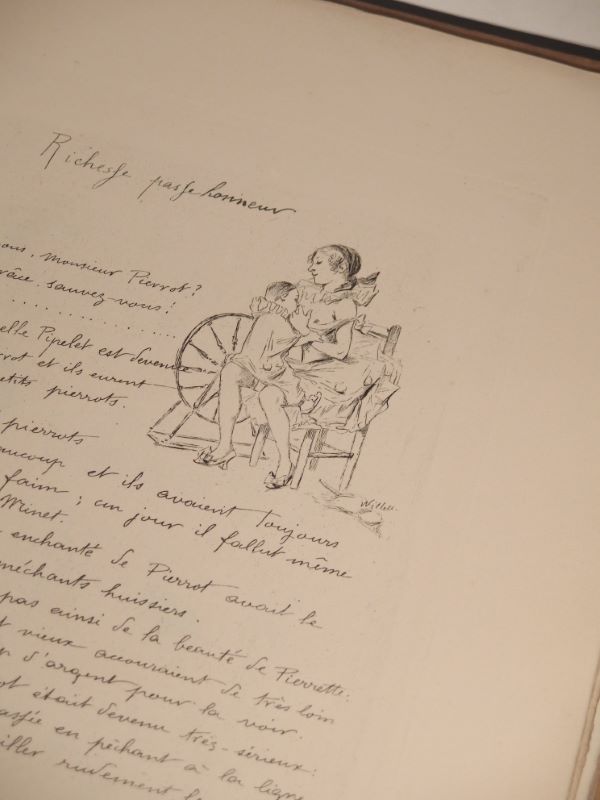 Richesse passe honneur
ous, Monsieur Pierrot?
râce, sauvez-vous!
elle Pipelet est devenue
rrot et ils eurent
etits pierrots.
pierrots
aucoup et ils avaient toujours
faim; un jour il fallut même
Minet.
enchanté de Pierrot avait le
méchants huissiers.
pas ainsi de la beauté de Pierrette:
t vieux accouraient de très loin
p d'argent pour la voir.
ot était devenu très-sérieux:
assée en pêchant à la ligne
iller rudement le